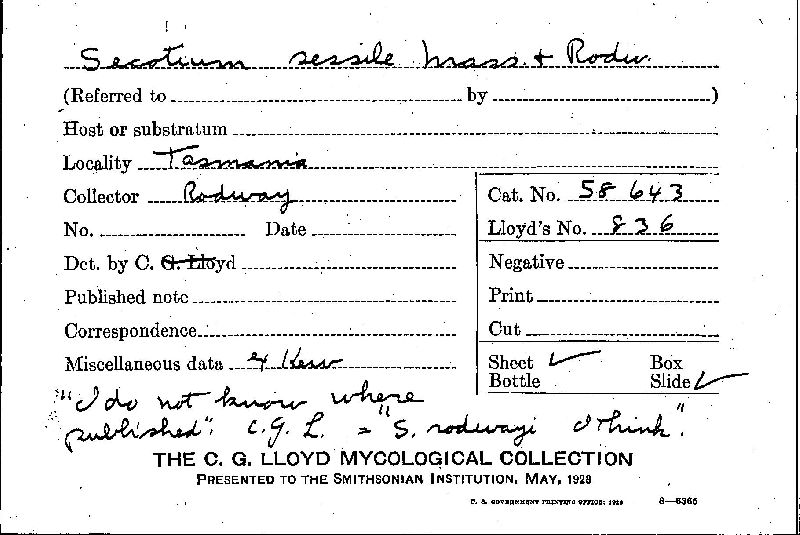 Secotium sessile Mass. & Rodw.
(Referred to by )
Host or substratum
Locality Tasmania
Collector Rodway
No. Date
Det. by C. G. Lloyd
Published note
Correspondence
Miscellaneous data ex Kew
Cat. No. 58 643
Lloyd's No. 836
Negative
Print
Cut
Sheet ✓ Box
Bottle Slide ✓
"I do not know where
published". C.G.L. = "S. rodwayi I think".
THE C. G. LLOYD MYCOLOGICAL COLLECTION
PRESENTED TO THE SMITHSONIAN INSTITUTION, MAY, 1928
U. S. GOVERNMENT PRINTING OFFICE: 1928 8—5365